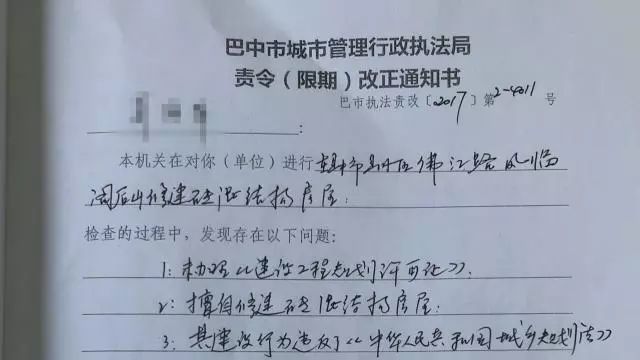 巴中市城市管理行政执法局
责令（限期）改正通知书
巴市执法责改〔2017〕第2-4011号
本机关在对你（单位）进行巴中市巴州区佛江路凤临
阁后山修建砖混结构房屋
检查的过程中，发现存在以下问题：
1：未办理《建设工程规划许可证》；
2：擅自修建砖混结构房屋；
3：其建设行为违反了《中华人民共和国城乡规划法》